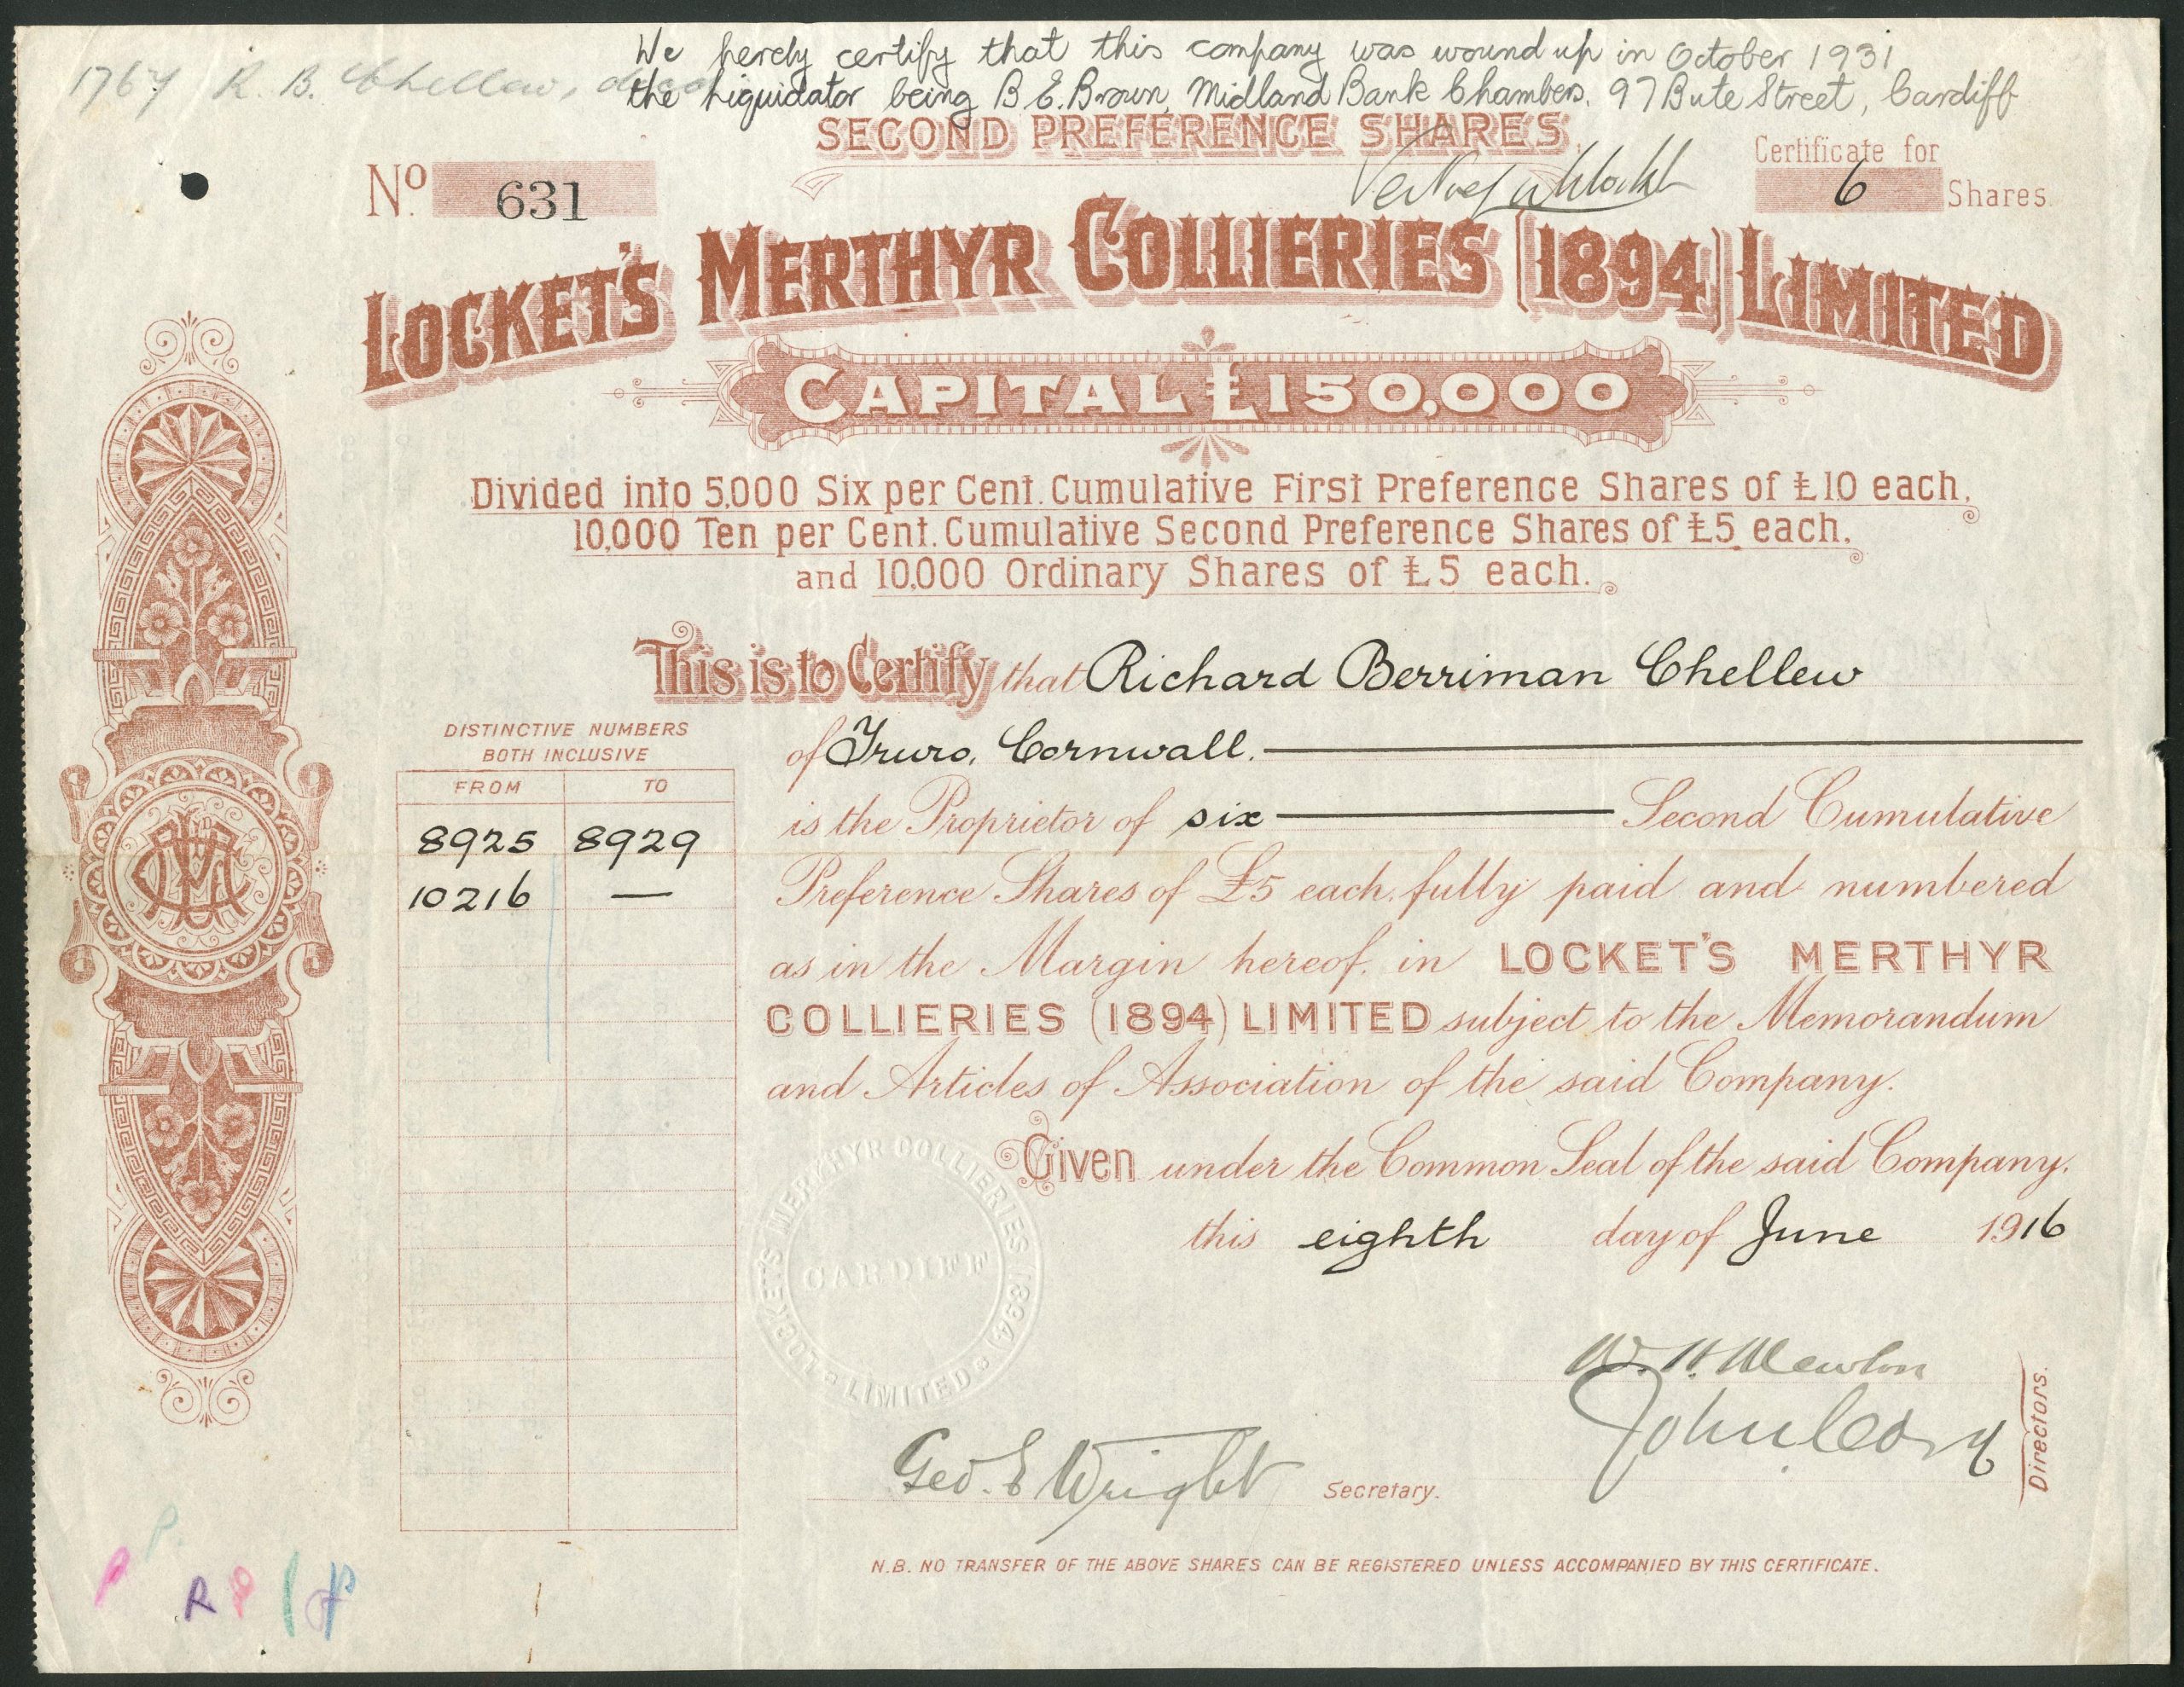 We hereby certify that this company was wound up in October 1931
1767 R. B. Chellew, decd
the Liquidator being B. E. Brown, Midland Bank Chambers, 97 Bute Street, Cardiff
SECOND PREFERENCE SHARES.
No. 631
Certificate for
6 Shares.
LOCKET'S MERTHYR COLLIERIES (1894) LIMITED
CAPITAL £150,000
Divided into 5,000 Six per Cent. Cumulative First Preference Shares of £10 each,
10,000 Ten per Cent. Cumulative Second Preference Shares of £5 each,
and 10,000 Ordinary Shares of £5 each.
This is to Certify that Richard Berriman Chellew
of Truro, Cornwall.
is the Proprietor of six Second Cumulative
Preference Shares of £5 each, fully paid and numbered
as in the Margin hereof, in LOCKET'S MERTHYR
COLLIERIES (1894) LIMITED subject to the Memorandum
and Articles of Association of the said Company.
DISTINCTIVE NUMBERS
BOTH INCLUSIVE
FROM TO
8925 8929
10216 —
Given under the Common Seal of the said Company,
this eighth day of June 1916
LOCKET'S MERTHYR COLLIERIES (1894) LIMITED
CARDIFF
W. H. Mewton
John Cory
Directors.
Geo. E Wright Secretary.
N.B. NO TRANSFER OF THE ABOVE SHARES CAN BE REGISTERED UNLESS ACCOMPANIED BY THIS CERTIFICATE.